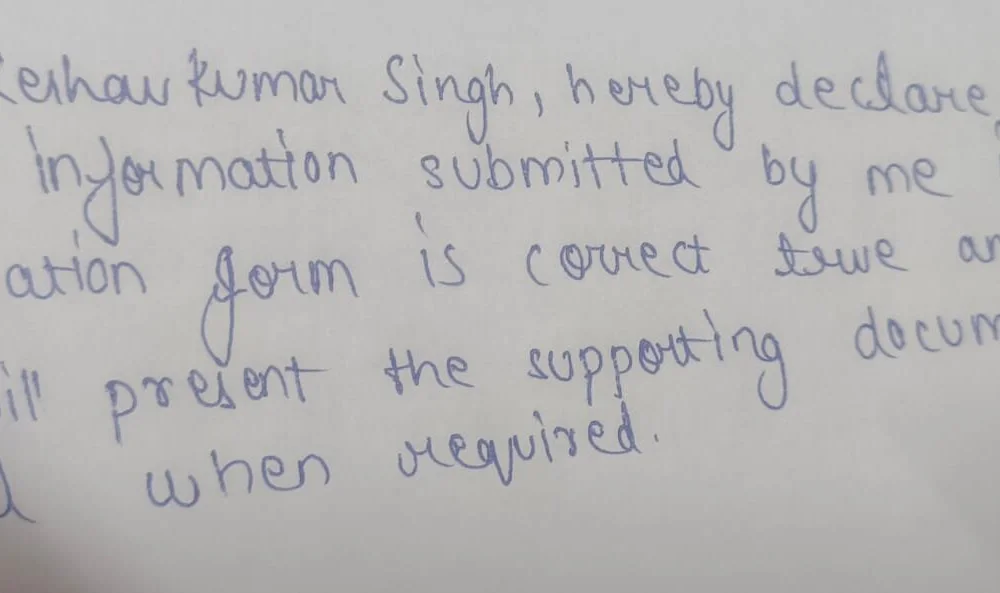 Keshav Kumar Singh, hereby declare
information submitted by me
ation form is correct true an
ill present the supporting docum
d when required.